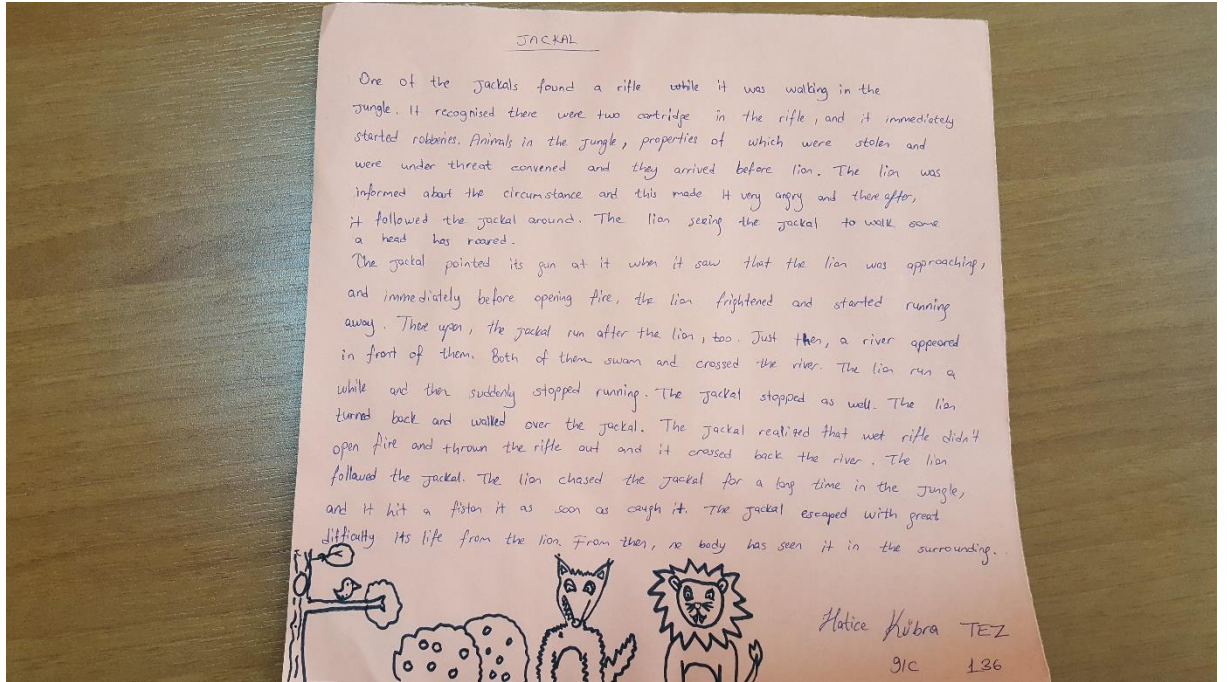 JACKAL
One of the Jackals found a rifle while it was walking in the
Jungle. It recognised there were two cartridge in the rifle, and it immediately
started robberies. Animals in the Jungle, properties of which were stolen and
were under threat convened and they arrived before lion. The lion was
informed about the circumstance and this made it very angry and there after,
it followed the Jackal around. The lion seeing the Jackal to walk some
a head has roared.
The Jackal pointed its gun at it when it saw that the lion was approaching,
and immediately before opening fire, the lion frightened and started running
away. There upon, the Jackal run after the lion, too. Just then, a river appeared
in front of them. Both of them swam and crossed the river. The lion run a
while and then suddenly stopped running. The Jackal stopped as well. The lion
turned back and walked over the Jackal. The Jackal realized that wet rifle didn't
open fire and thrown the rifle out and it crossed back the river. The lion
followed the Jackal. The lion chased the Jackal for a long time in the Jungle,
and it hit a fist on it as soon as caugh it. The Jackal escaped with great
difficulty its life from the lion. From then, no body has seen it in the surrounding.
Hatice Kübra TEZ
9/C 136